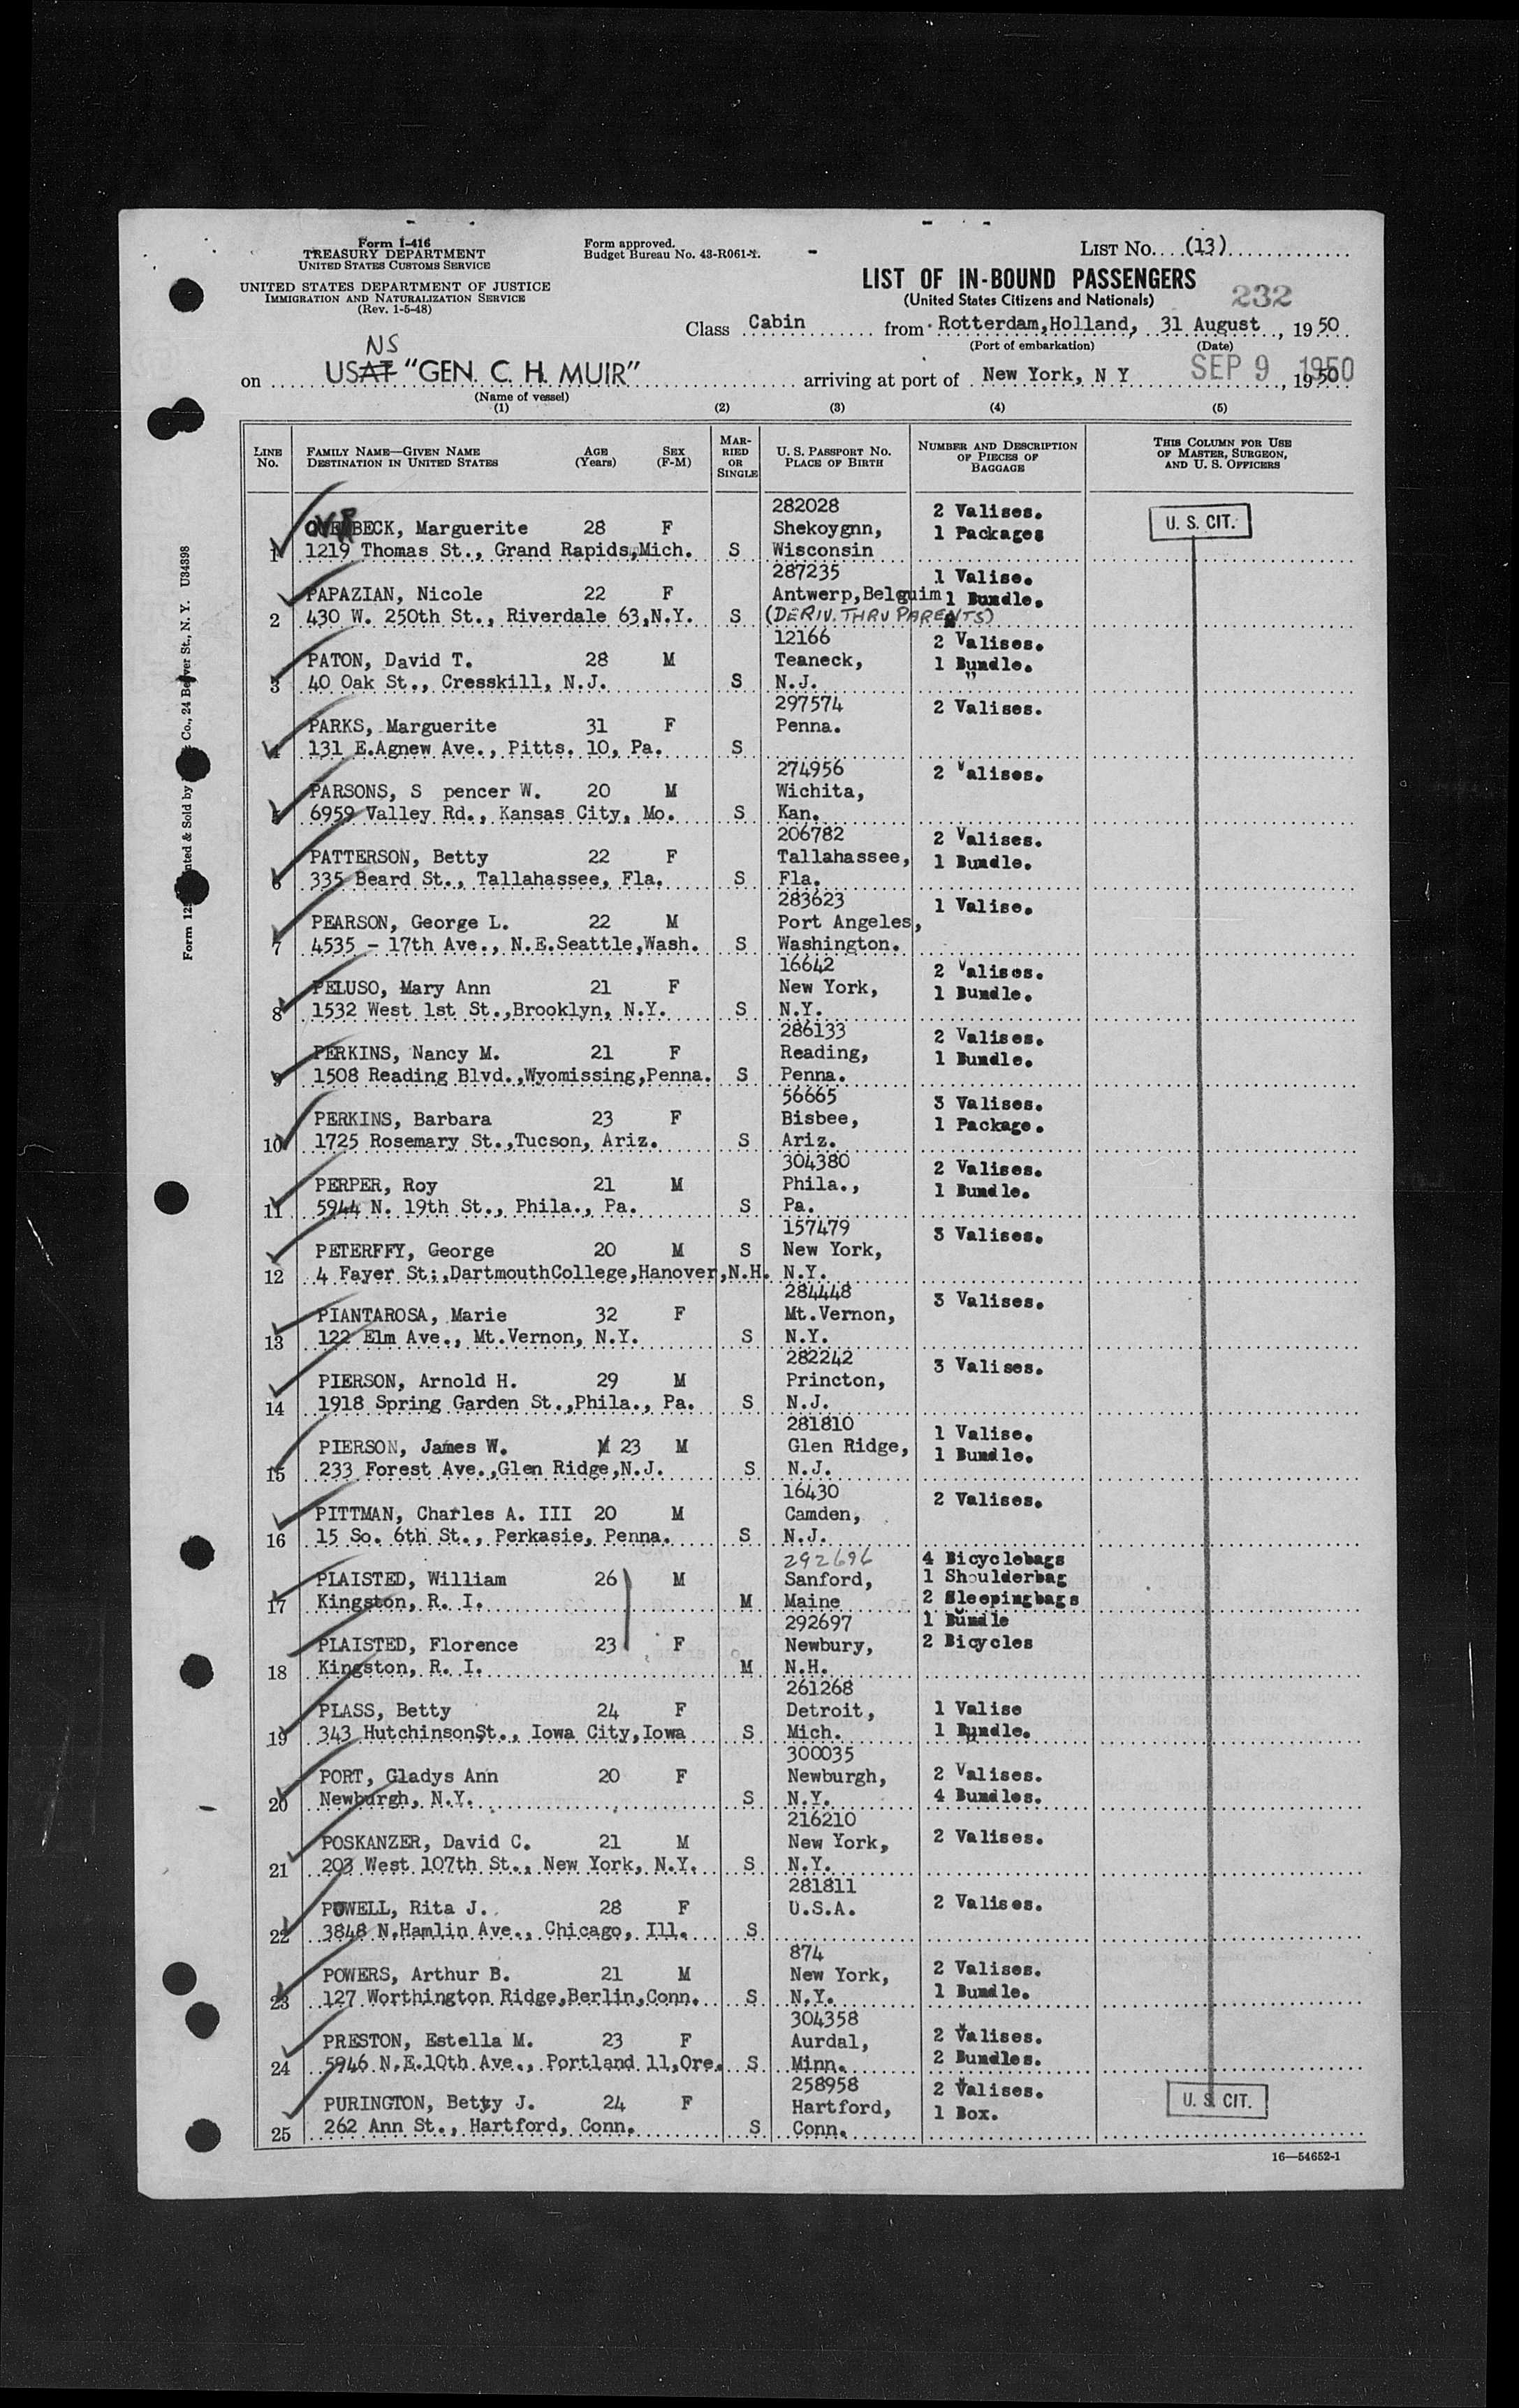 Form I-416
TREASURY DEPARTMENT
UNITED STATES CUSTOMS SERVICE
UNITED STATES DEPARTMENT OF JUSTICE
IMMIGRATION AND NATURALIZATION SERVICE
(Rev. 1-5-48)
Form approved.
Budget Bureau No. 43-R061-4.
LIST No. (13)
LIST OF IN-BOUND PASSENGERS
(United States Citizens and Nationals)
232
Class Cabin from Rotterdam,Holland, 31 August, 1950
(Port of embarkation) (Date)
NS
on USAT "GEN. C. H. MUIR" arriving at port of New York, N Y SEP 9 1950, 1950
(Name of vessel)
(1) (2) (3) (4) (5)
LINE No.
FAMILY NAME—GIVEN NAME
DESTINATION IN UNITED STATES
AGE (Years)
SEX (F-M)
MARRIED OR SINGLE
U. S. PASSPORT NO.
PLACE OF BIRTH
NUMBER AND DESCRIPTION OF PIECES OF BAGGAGE
THIS COLUMN FOR USE OF MASTER, SURGEON, AND U. S. OFFICERS
282028 2 Valises.
BECK, Marguerite 28 F Shekoygnn, 1 Packages U. S. CIT.
1 1219 Thomas St., Grand Rapids,Mich. S Wisconsin
287235 1 Valise.
PAPAZIAN, Nicole 22 F Antwerp,Belguim 1 Bundle.
2 430 W. 250th St., Riverdale 63,N.Y. S (DERIV. THRU PARENTS)
12166 2 Valises.
PATON, David T. 28 M Teaneck, 1 Bundle.
3 40 Oak St., Cresskill, N.J. S N.J. "
297574 2 Valises.
PARKS, Marguerite 31 F Penna.
4 131 E.Agnew Ave., Pitts. 10, Pa. S
274956 2 Valises.
PARSONS, S pencer W. 20 M Wichita,
5 6959 Valley Rd., Kansas City, Mo. S Kan.
206782 2 Valises.
PATTERSON, Betty 22 F Tallahassee, 1 Bundle.
6 335 Beard St., Tallahassee, Fla. S Fla.
283623 1 Valise.
PEARSON, George L. 22 M Port Angeles,
7 4535 - 17th Ave., N.E.Seattle,Wash. S Washington.
16642 2 Valises.
PELUSO, Mary Ann 21 F New York, 1 Bundle.
8 1532 West 1st St.,Brooklyn, N.Y. S N.Y.
286133 2 Valises.
PERKINS, Nancy M. 21 F Reading, 1 Bundle.
9 1508 Reading Blvd.,Wyomissing,Penna. S Penna.
56665 3 Valises.
PERKINS, Barbara 23 F Bisbee, 1 Package.
10 1725 Rosemary St.,Tucson, Ariz. S Ariz.
304380 2 Valises.
PERPER, Roy 21 M Phila., 1 Bundle.
11 5944 N. 19th St., Phila., Pa. S Pa.
157479 3 Valises.
PETERFFY, George 20 M S New York,
12 4 Fayer St:,DartmouthCollege,Hanover,N.H. N.Y.
284448 3 Valises.
PIANTAROSA, Marie 32 F Mt.Vernon,
13 122 Elm Ave., Mt.Vernon, N.Y. S N.Y.
282242 3 Valises.
PIERSON, Arnold H. 29 M Princton,
14 1918 Spring Garden St.,Phila., Pa. S N.J.
281810 1 Valise.
PIERSON, James W. M 23 M Glen Ridge, 1 Bundle.
15 233 Forest Ave.,Glen Ridge,N.J. S N.J.
16430 2 Valises.
PITTMAN, Charles A. III 20 M Camden,
16 15 So. 6th St., Perkasie, Penna. S N.J.
292696 4 Bicyclebags
PLAISTED, William 26 M Sanford, 1 Shoulderbag
17 Kingston, R. I. M Maine 2 Sleepingbags
292697 1 Bundle
PLAISTED, Florence 23 F Newbury, 2 Bicycles
18 Kingston, R. I. M N.H.
261268
PLASS, Betty 24 F Detroit, 1 Valise
19 343 HutchinsonSt., Iowa City,Iowa S Mich. 1 Bundle.
300035
PORT, Gladys Ann 20 F Newburgh, 2 Valises.
20 Newburgh, N.Y. S N.Y. 4 Bundles.
216210
POSKANZER, David C. 21 M New York, 2 Valises.
21 203 West 107th St., New York, N.Y. S N.Y.
281811
POWELL, Rita J. 28 F U.S.A. 2 Valises.
22 3848 N.Hamlin Ave., Chicago, Ill. S
874
POWERS, Arthur B. 21 M New York, 2 Valises.
23 127 Worthington Ridge,Berlin,Conn. S N.Y. 1 Bundle.
304358
PRESTON, Estella M. 23 F Aurdal, 2 Valises.
24 5946 N.E.10th Ave., Portland 11,Ore. S Minn. 2 Bundles.
258958 2 Valises.
PURINGTON, Betty J. 24 F Hartford, 1 Box. U. S. CIT.
25 262 Ann St., Hartford, Conn. S Conn.
16—54652-1
Co., 24 Beaver St., N. Y. U34398